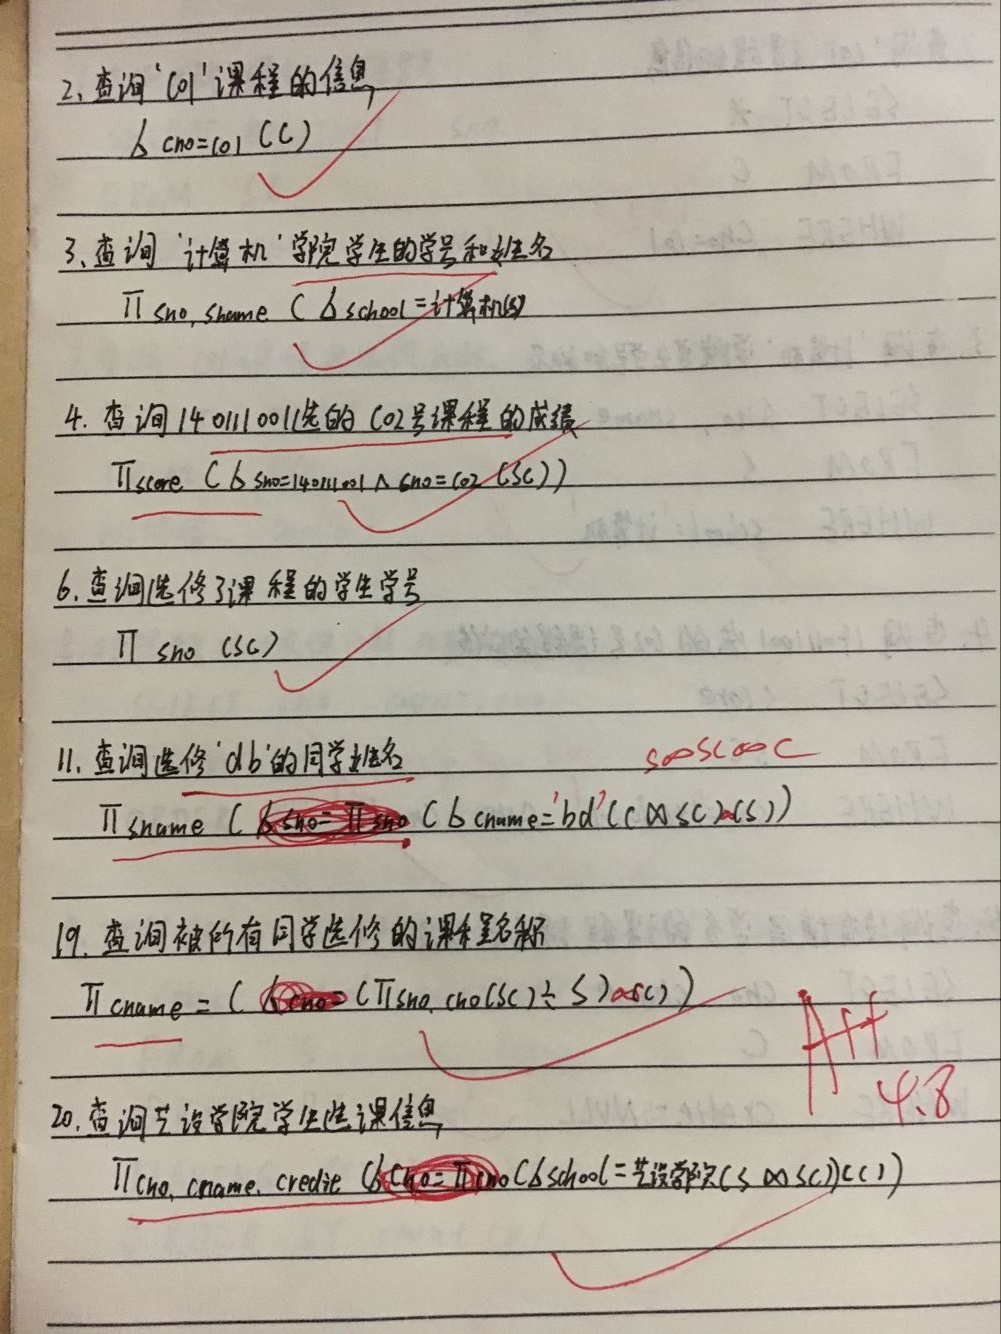 2、查询'C01'课程的信息
б cno=C01 (C)
3、查询'计算机'学院学生的学号和姓名
Π sno, sname (б school=计算机(S)
4. 查询140111001选的C02号课程的成绩
Π score (б sno=140111001 ∧ sno=C02 (SC))
6、查询选修了课程的学生学号
Π sno (SC)
11、查询选修'db'的同学姓名
S∞SC∞C
Π sname (б sno=Π sno (б cname='bd'(C∞SC)∞(S))
19、查询被所有同学选修的课程名称
Π cname = (б cno= (Π sno, cno(SC)÷S)∞(C))
A++
4.8
20、查询艺设学院学生选课信息
Π cno, cname, credit (б cno=Π cno(б school=艺设学院(S∞SC))(C))